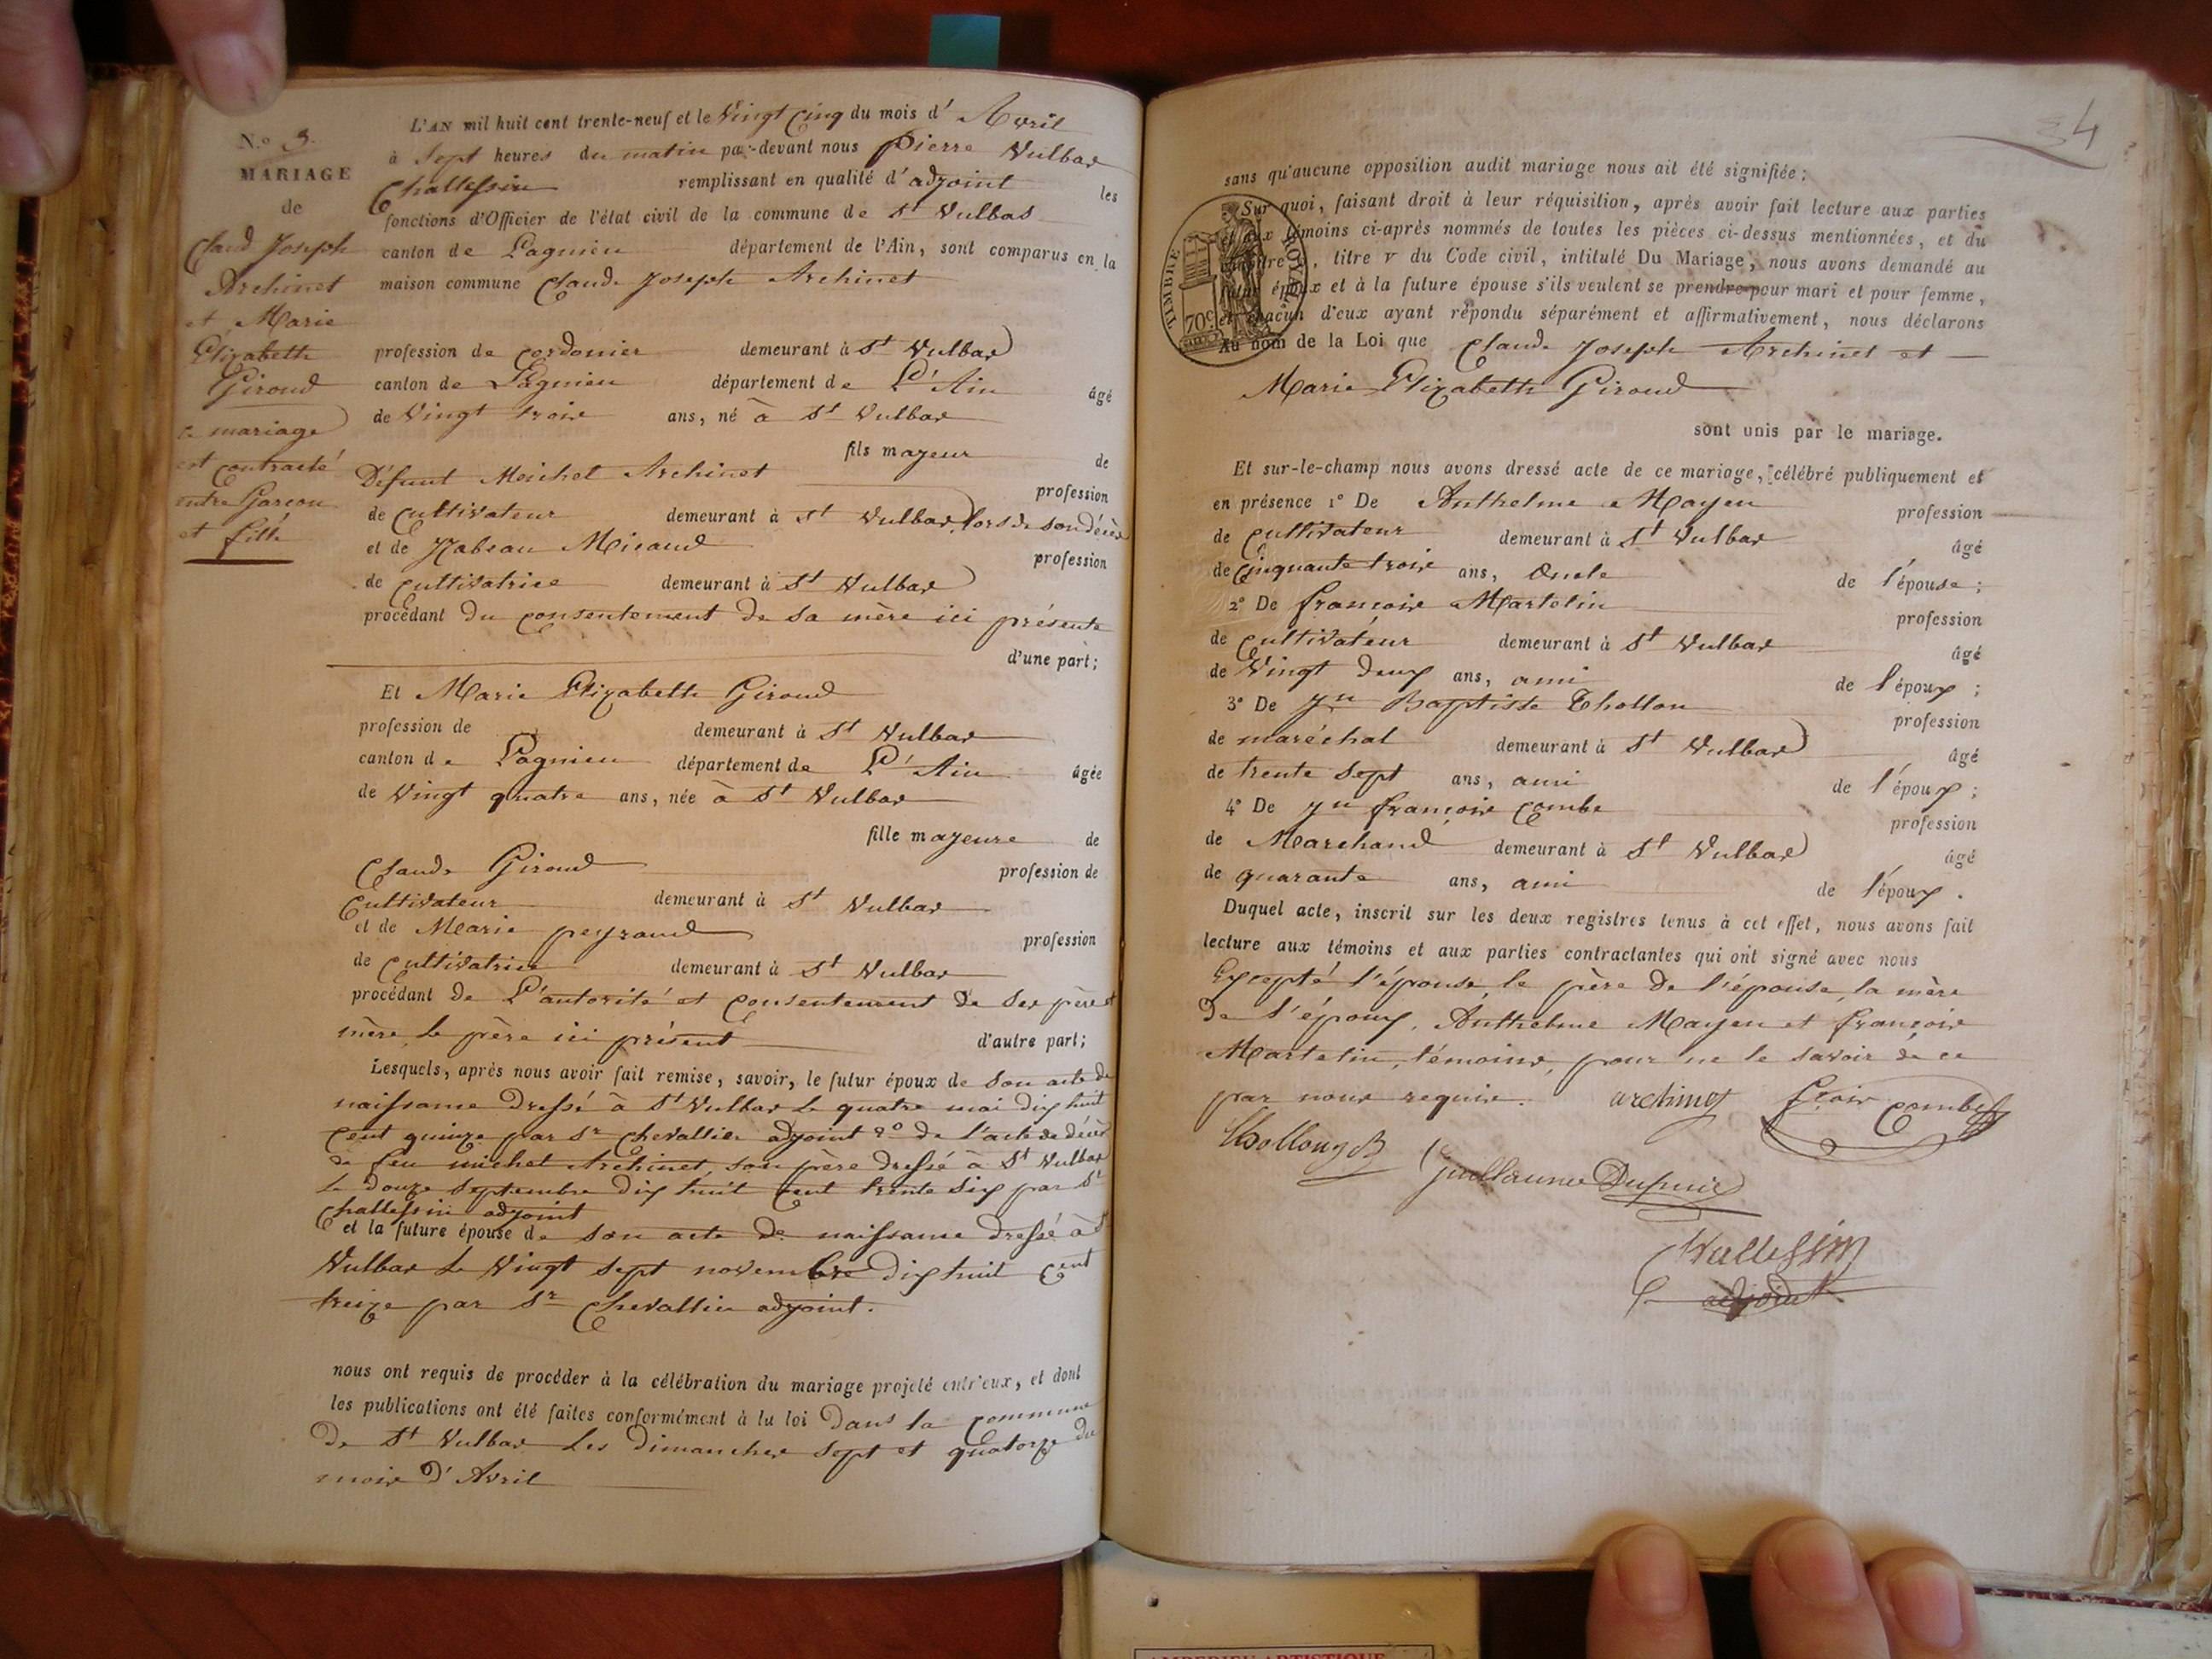 N.o 3.
MARIAGE
de
Claud Joseph
Archinet
et Marie
Elizabeth
Giroud
mariage
est contracté
entre Garcon
et fille
L'AN mil huit cent trente-neuf et le Vingt Cinq du mois d' Avril
à Sept heures du matin par-devant nous Pierre Vulbas
Challessin remplissant en qualité d' adjoint les
fonctions d'Officier de l'état civil de la commune de St Vulbas
canton de Lagnieu département de l'Ain, sont comparus en la
maison commune Claude Joseph Archinet
profession de Cordonier demeurant à St Vulbas
canton de Lagnieu département de L'Ain âgé
de Vingt trois ans, né à St Vulbas
fils majeur de
Défunt Meichel Archinet profession
de Cultivateur demeurant à St Vulbas lors de son décès
et de Isabeau Micaud profession
de Cultivatrice demeurant à St Vulbas
procédant du consentement de sa mère ici présente
d'une part;
Et Marie Elizabeth Giroud
profession de demeurant à St Vulbas
canton de Lagnieu département de L'Ain âgée
de Vingt quatre ans, née à St Vulbas
fille majeure de
Claude Giroud profession de
Cultivateur demeurant à St Vulbas
et de Marie peyraud profession
de Cultivatrice demeurant à St Vulbas
procédant de L'autorité et consentement de ses père et
mère, le père ici présent d'autre part;
Lesquels, après nous avoir fait remise, savoir, le futur époux de son acte de
naissance dressé à St Vulbas le quatre mai dix huit
Cent quinze par Sr Chevallier adjoint 2o de l'acte de décès
de feu michel Archinet, son père dressé à St Vulbas
le douze Septembre dix huit cent trente six par Sr
Challessin adjoint
et la future épouse de son acte de naissance dressé à St
Vulbas le Vingt sept novembre dix huit cent
treize par Sr Chevallier adjoint.
nous ont requis de procéder à la célébration du mariage projeté entr'eux, et dont
les publications ont été faites conformément à la loi Dans la commune
de St Vulbas les dimanches sept et quatorze du
mois d'Avril
34
sans qu'aucune opposition audit mariage nous ait été signifiée;
TIMBRE ROYAL
70c
Sur quoi, faisant droit à leur réquisition, après avoir fait lecture aux parties
et aux témoins ci-après nommés de toutes les pièces ci-dessus mentionnées, et du
chapitre , titre v du Code civil, intitulé Du Mariage, nous avons demandé au
futur époux et à la future épouse s'ils veulent se prendre pour mari et pour femme,
et chacun d'eux ayant répondu séparément et affirmativement, nous déclarons
Au nom de la Loi que Claude Joseph Archinet et
Marie Elizabeth Giroud
sont unis par le mariage.
Et sur-le-champ nous avons dressé acte de ce mariage, célébré publiquement et
en présence 1° De Anthelme Mayen profession
de Cultivateur demeurant à St Vulbas âgé
de Cinquante trois ans, Oncle de l'épouse;
2° De francois Martelin profession
de Cultivateur demeurant à St Vulbas âgé
de Vingt deux ans, ami de l'époux;
3° De Jn Baptiste Thollon profession
de maréchal demeurant à St Vulbas âgé
de trente Sept ans, ami de l'époux;
4° De Jn francois Combe profession
de Marchand demeurant à St Vulbas âgé
de quarante ans, ami de l'époux.
Duquel acte, inscrit sur les deux registres tenus à cet effet, nous avons fait
lecture aux témoins et aux parties contractantes qui ont signé avec nous
Excepté l'épouse, le père de l'épouse, la mère
de l'époux, Anthelme Mayen et francois
Martelin, témoins, pour ne le savoir de ce
par nous requis. archinet fcois Combe
thollon J B
Guillaume Dupuis
Challessin
adjoint
AMBERIEU ARTISTIQUE